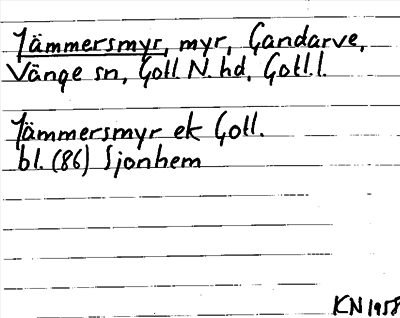 Jämmersmyr, myr, Gandarve,
Vänge sn, Gotl. N. hd, Gotl. l.
Jämmersmyr ek Gotl.
bl. (86) Sjonhem
KN 1958